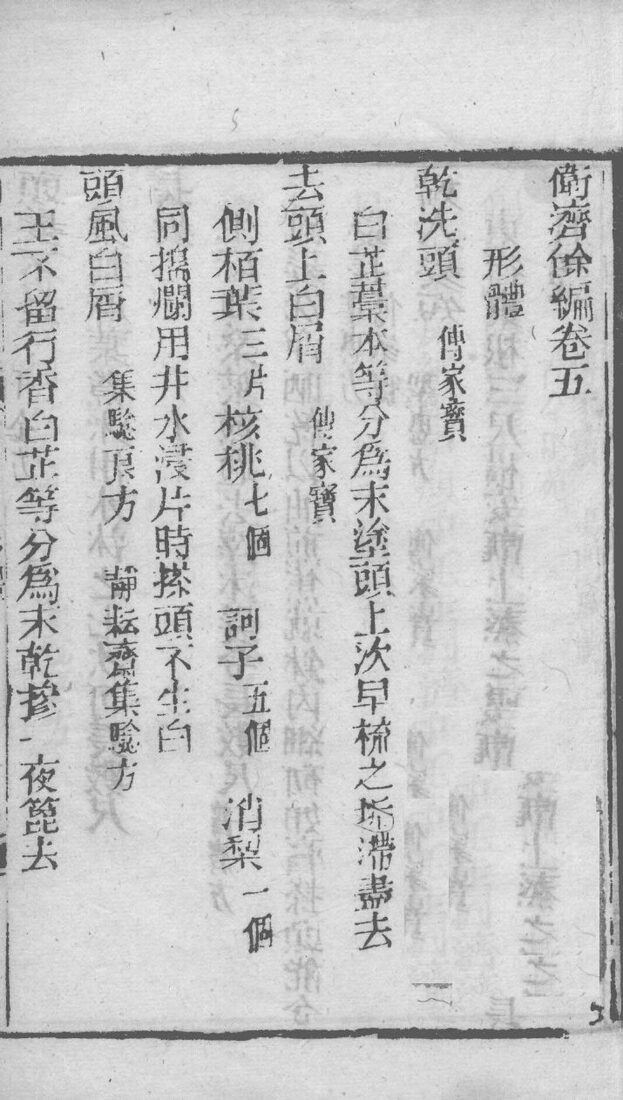 衛濟餘編卷五
形體
乾洗頭 傳家寶
白芷藁本等分為末塗頭上次早梳之垢滯盡去
去頭上白屑 傳家寶
側栢葉三片核桃七個 訶子五個 消梨一個
同搗爛用井水浸片時搽頭不生白
頭風白屑 集驗良方 靜耘齋集驗方
王不留行香白芷等分為末乾摻一夜篦去